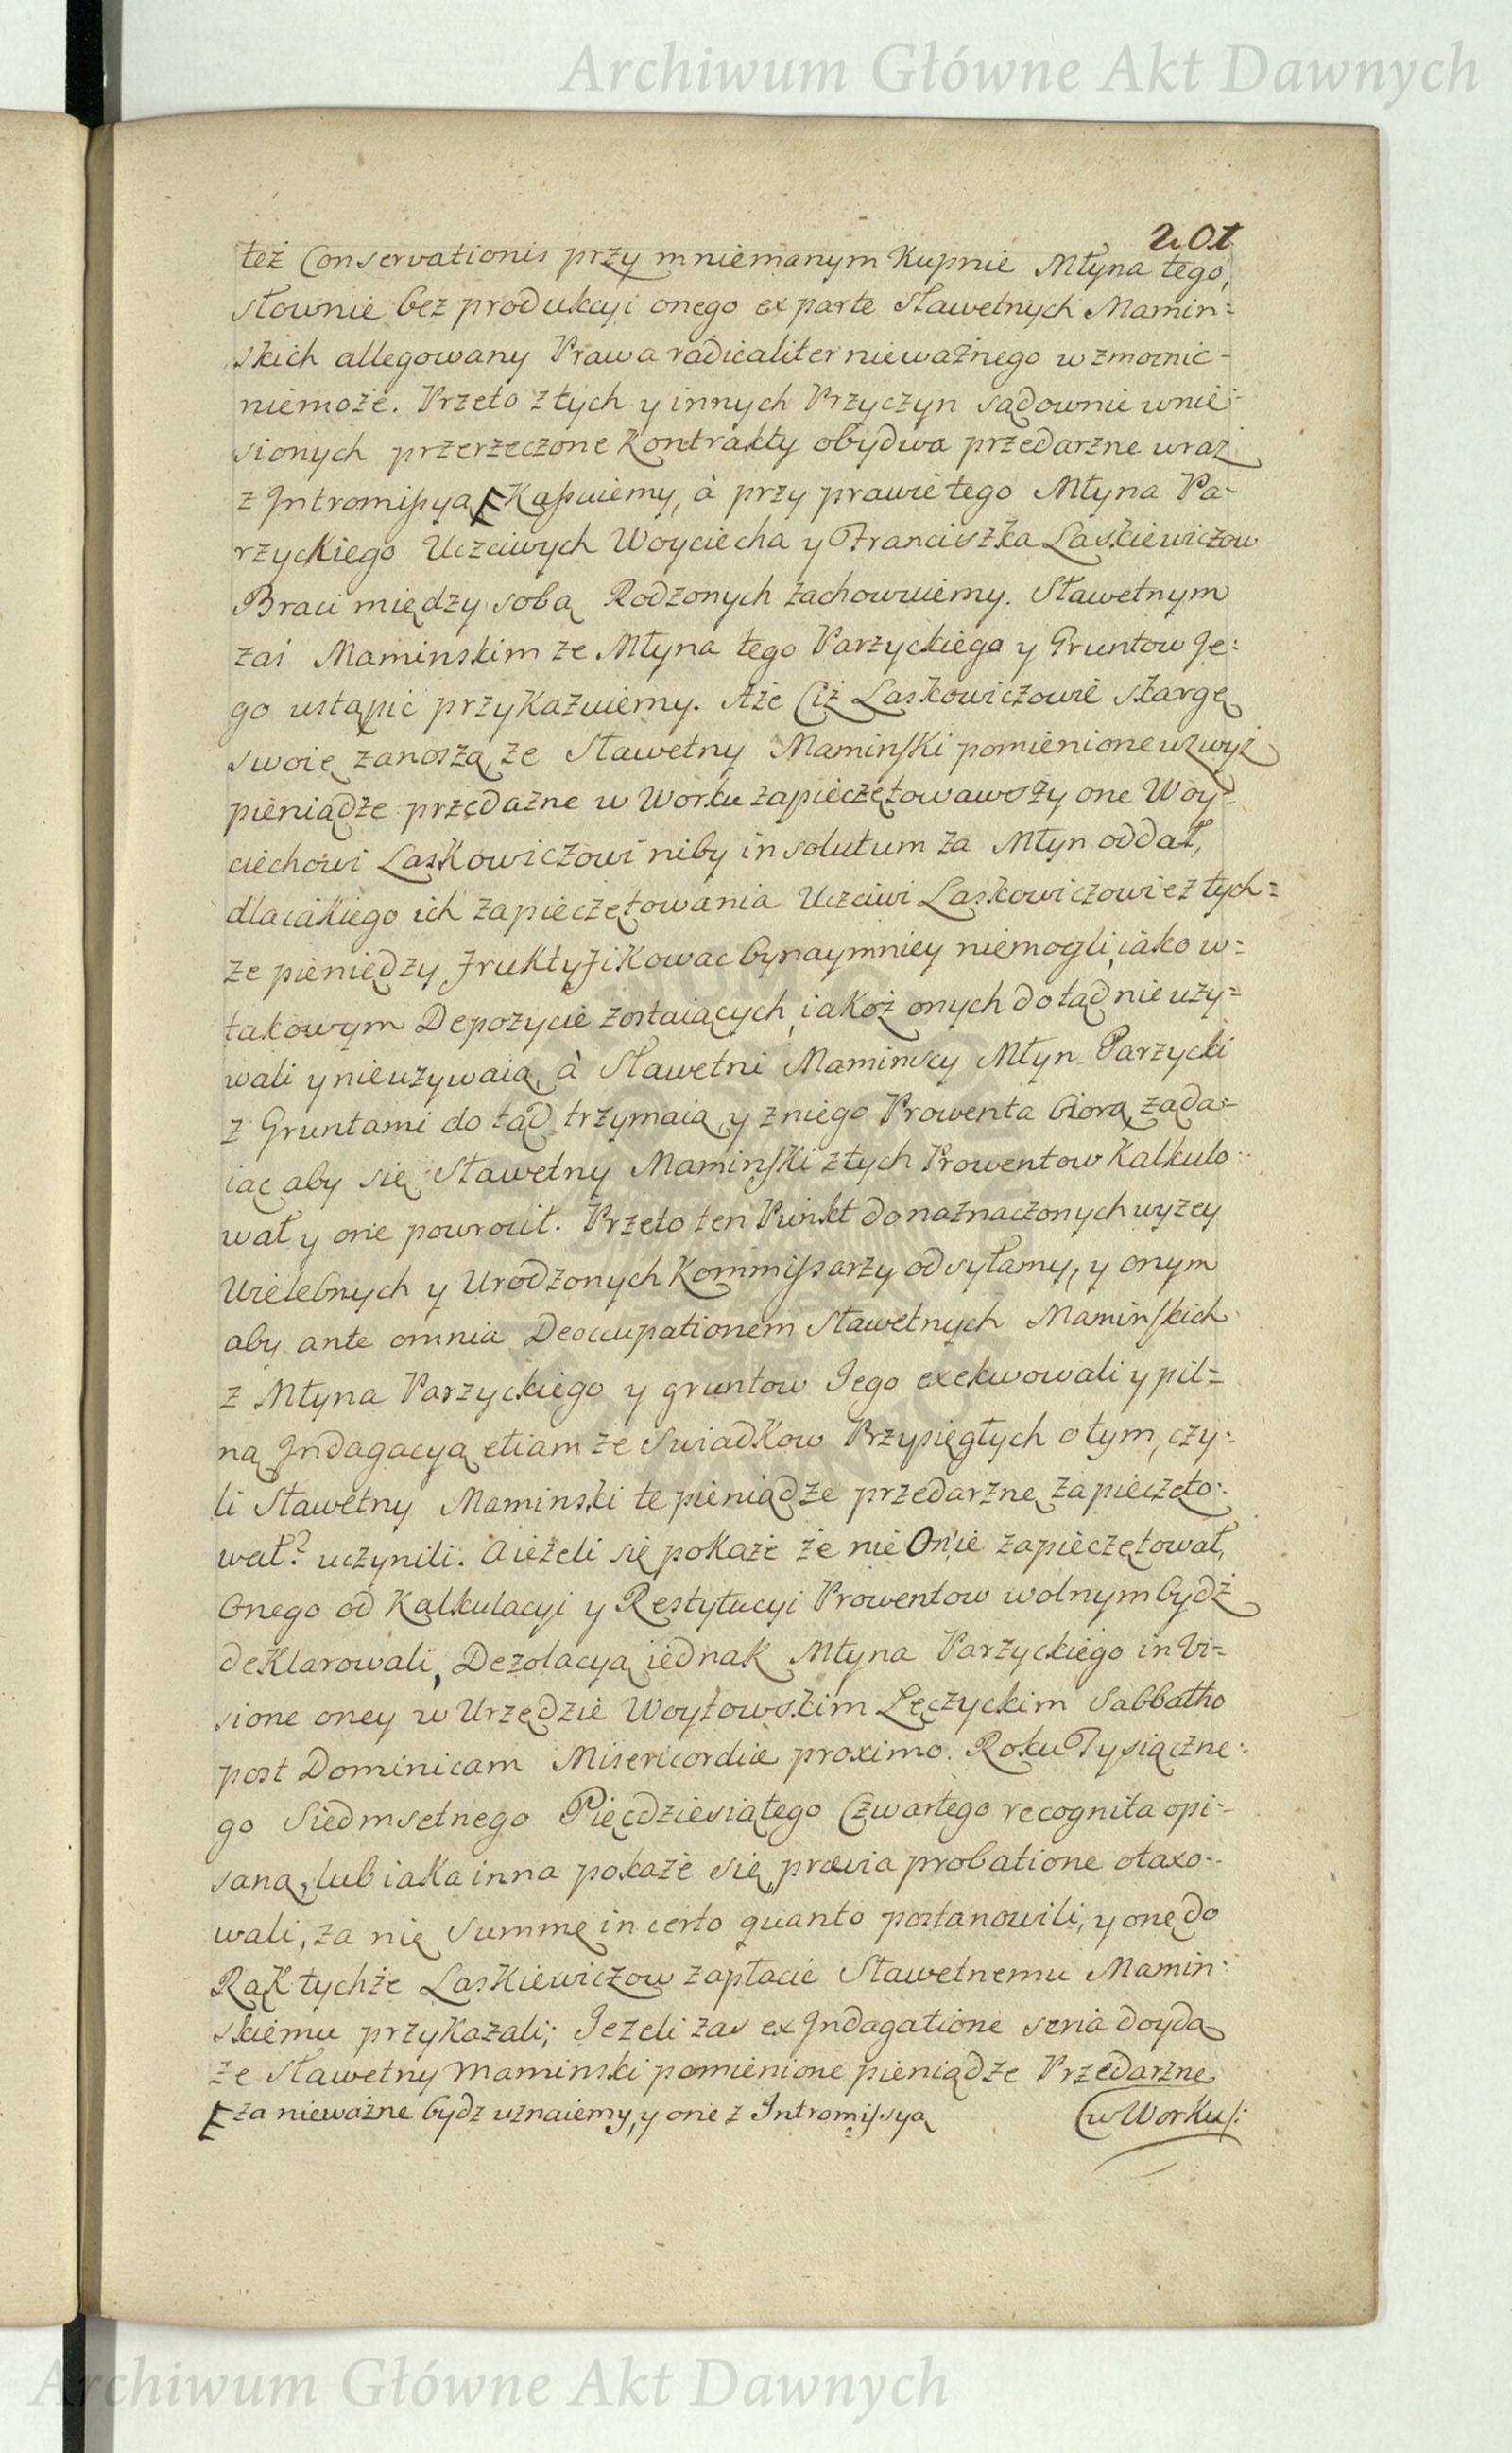 Archiwum Główne Akt Dawnych
201
też Conservationis przy mniemanym Kupnie Młyna tego,
słownie bez produkcyi onego ex parte Sławetnych Mamin=
skich allegowany Prawa radicaliter nieważnego wzmocnic-
niemoże. Przeto z tych y innych Przyczyn sądownie wnie=
sionych przerzeczone Kontrakty obydwa przedarzne wraz
z Intromissyą Kassuiemy, à przy prawie tego Młyna Pa-
rzyckiego Uczciwych Woyciecha y Franciszka Laskiewiczow
Braci między sobą Rodzonych zachowuiemy. Sławetnym
zaś Maminskim ze Młyna tego Parzyckiego y Gruntow Je:
go ustąpić przykazuiemy. Aże Ciż Laskowiczowie skargę
swoię zanoszą, że Sławetny Maminski pomienione wzwyż
pieniądze przedażne w Worku zapieczętowawszy one Woy=
ciechowi Laskowiczowi niby in solutum za Młyn oddał,
dla iakiego ich zapieczętowania Uczciwi Laskowiczowie z tych=
że pieniędzy fruktyfikowac bynaymniey niemogli, iako w=
takowym Depozycie zostaiących, iakoż onych dotąd nie uży=
wali y nieużywaią, à Sławetni Maminscy Młyn Parzycki
z Gruntami do tąd trzymaią, y z niego Prowenta biorą, żąda=
iąc aby się Sławetny Maminski z tych Prowentow Kalkulo=
wał y one powrocił. Przeto ten Punkt do naznaczonych wyżey
Wielebnych y Urodzonych Kommissarzy odsyłamy, y onym
aby ante omnia Deoccupationem Sławetnych Maminskich
z Młyna Parzyckiego y gruntow Jego exekwowali y pil=
ną Indagacyą etiam ze Swiadkow Przysięgłych o tym, czy=
li Sławetny Maminski te pieniądze przedarzne zapieczęto:
wał? uczynili. A ieżeli się pokaże że nie On ie zapieczętował,
Onego od Kalkulacyi y Restytucyi Prowentow wolnym bydź
deklarowali, Dezolacyą iednak Młyna Parzyckiego in Vi=
sione oney w Urzędzie Woytowskim Łęczyckim Sabbatho
post Dominicam Misericordiæ proximo. Roku Tysiączne:
go Siedmsetnego Pięcdziesiątego Czwartego recognita opi=
saną, lub iaka inna pokaże się, prævia probatione otaxo=
wali, za nię Summę in certo quanto postanowili, y onę do
Rąk tychże Laskiewiczow zapłacić Sławetnemu Mamin=
skiemu przykazali; Jeżeli zas ex Indagatione seria doydą
że Sławetny Maminski pomienione pieniądze Przedarzne
za nieważne bydz uznaiemy, y one z Intromissyą
(w Worku/:
Archiwum Główne Akt Dawnych